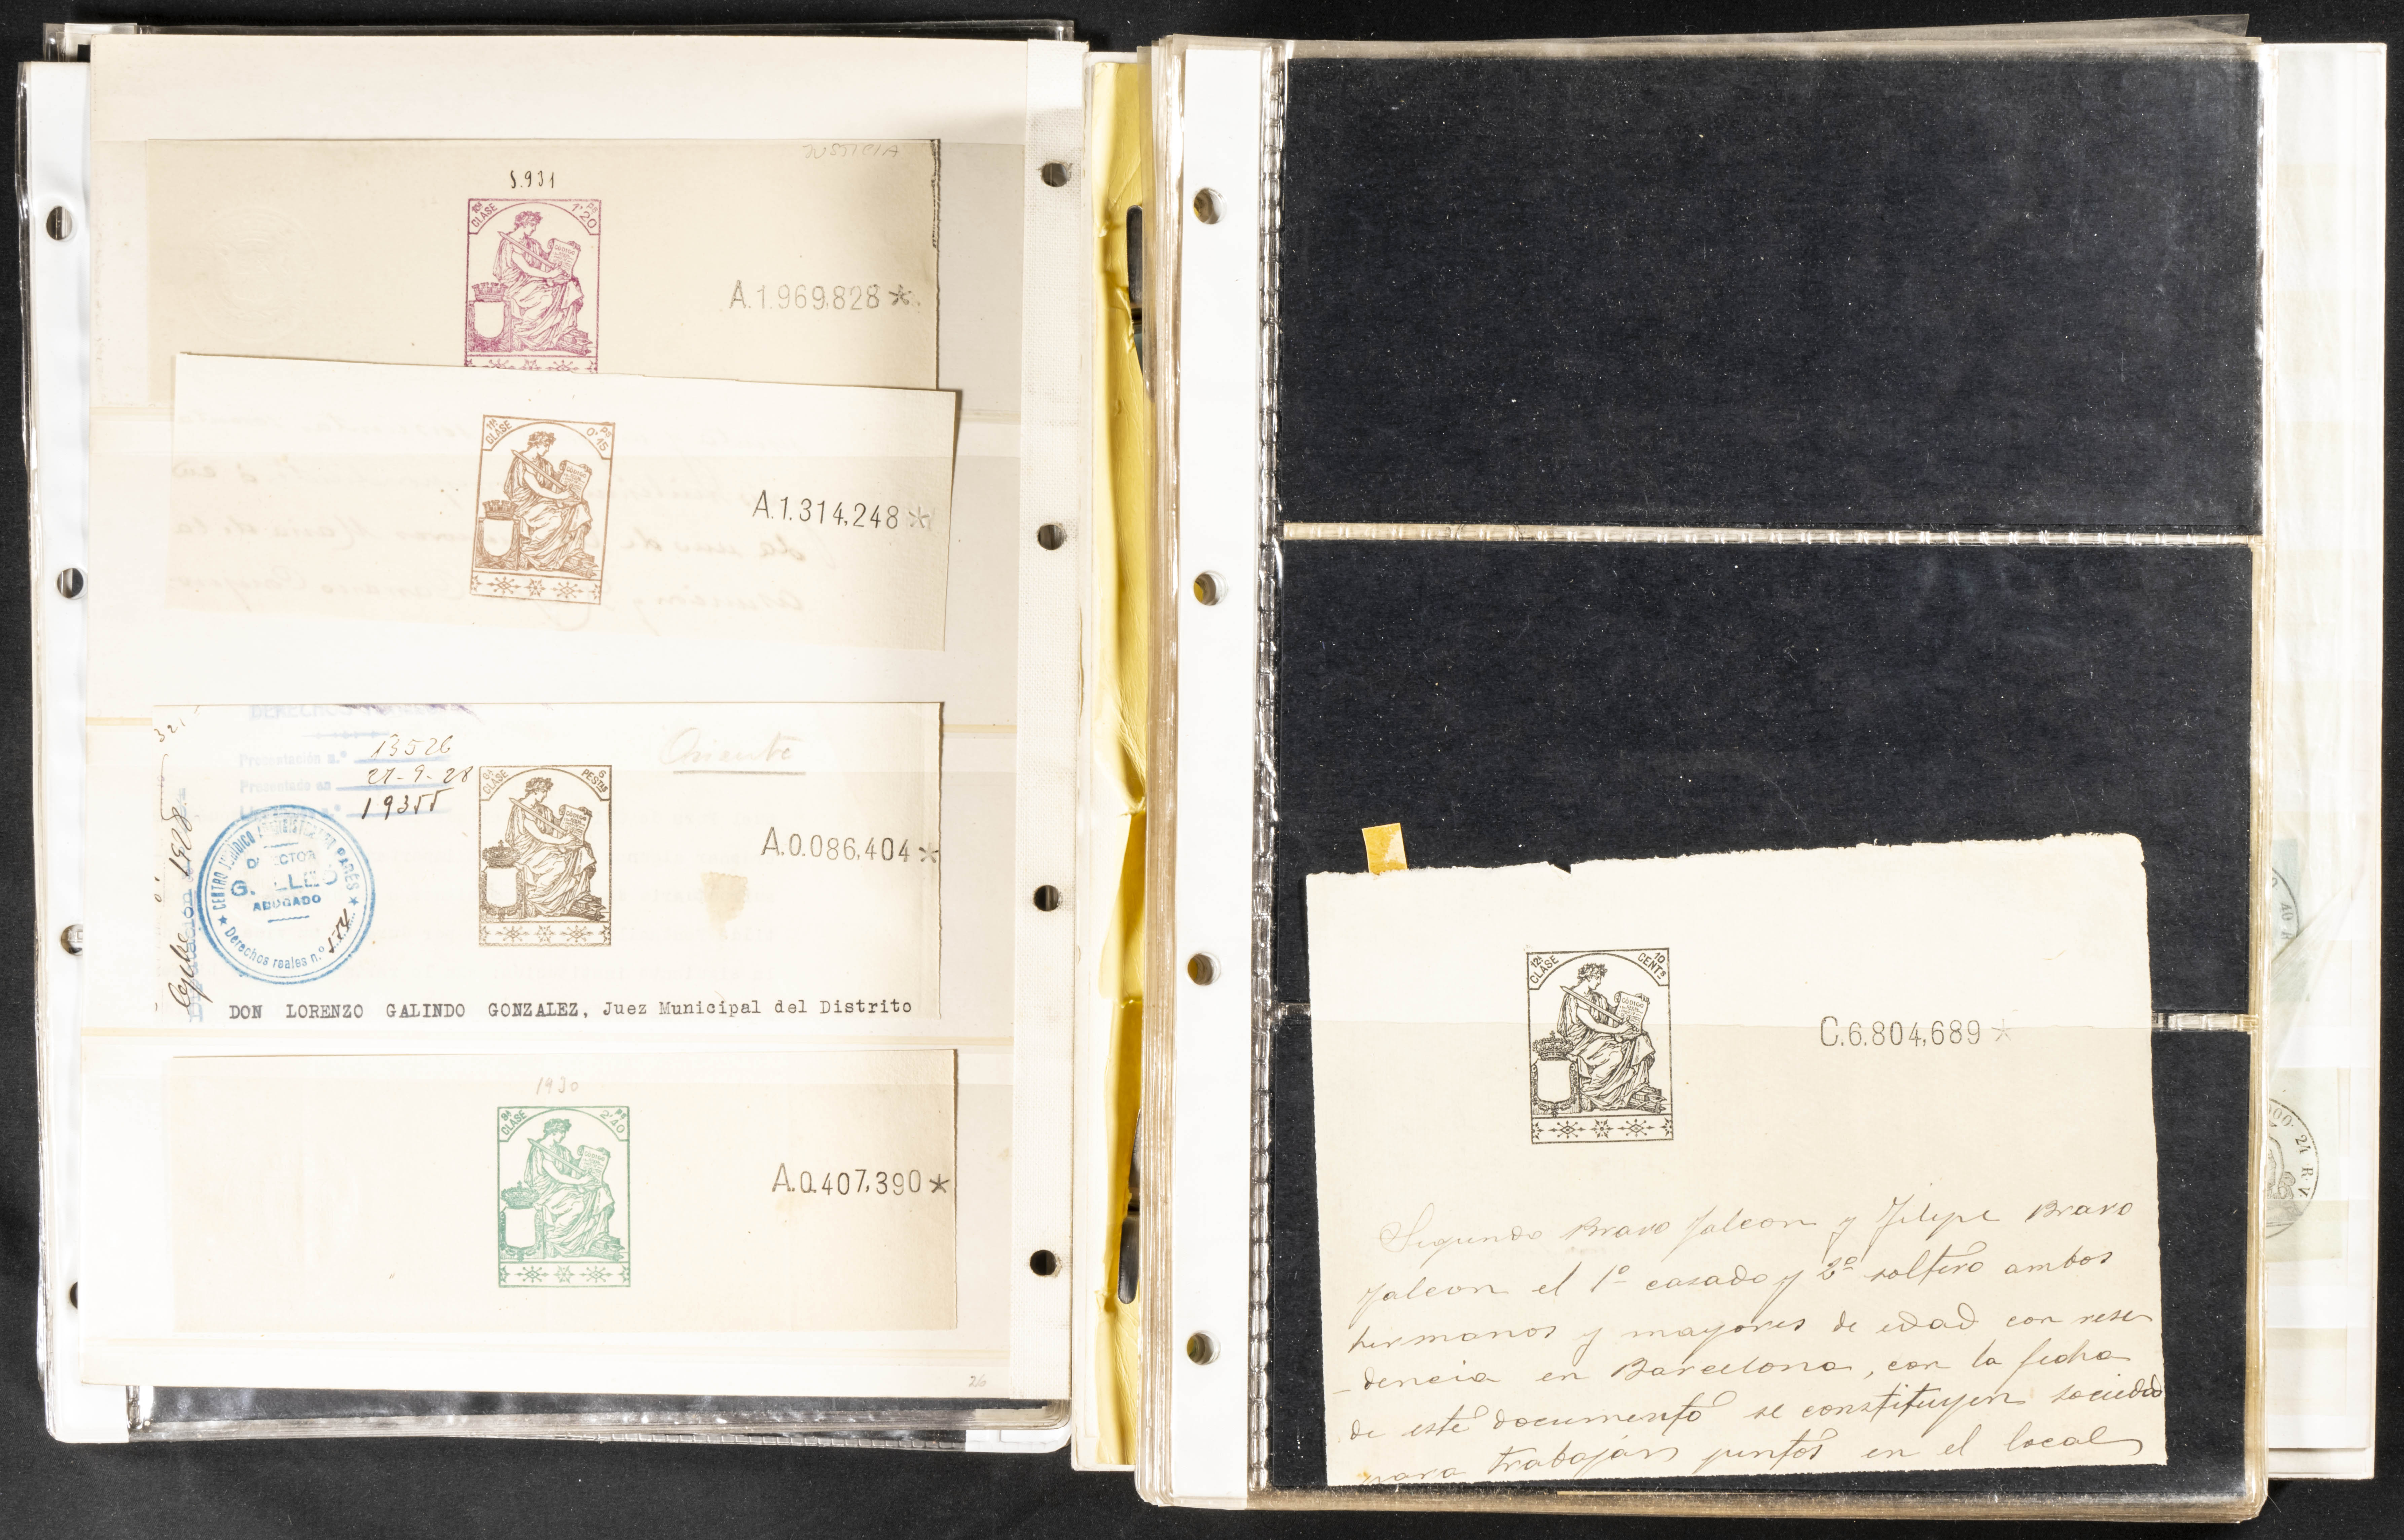 JUSTICIA
S.931
10ª CLASE
1'20 Ps
CODIGO
A.1.969,828*
11ª CLASE
0'15 Ps
CODIGO
A.1.314,248*
DERECHOS
Presentación n.º 13526
Presentado en 27-9-28
19355
Oriente
6 PESTas
CLASE
CODIGO
A.0.086,404*
1928
CENTRO JURIDICO
PARÉS
ABOGADO
Derechos reales n.º
DON LORENZO GALINDO GONZALEZ, Juez Municipal del Distrito
1930
8ª CLASE
2'40 Ps
CODIGO
A.0.407,390*
26
12ª CLASE
10 CENTs
CODIGO
C.6.804,689*
Segundo Bravo Falcon y Filipe Bravo
Falcon el 1º casado y 2º soltero ambos
hermanos y mayores de edad con resi
-dencia en Barcelona, con la fecha
de este documento se constituyen sociedad
para trabajar juntos en el local